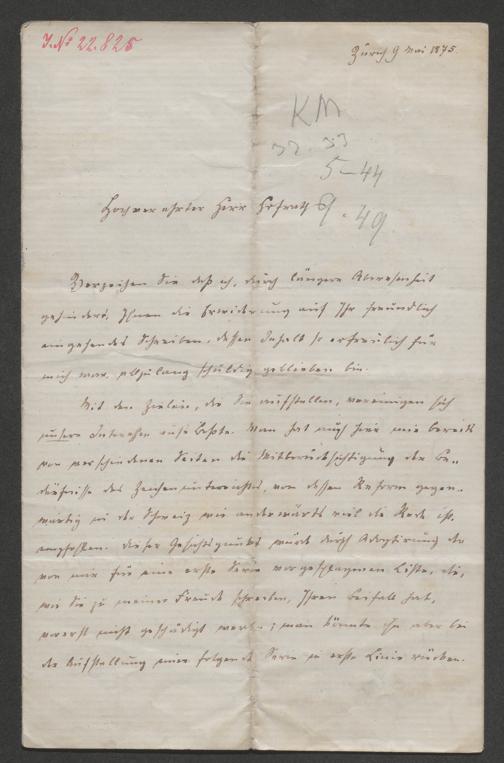 J. No 22.825
Zürich 9 Mai 1875.
KM
32. 33
5-44
9.49
Hochverehrter Herr Hofrath
Verzeihen Sie daß ich, durch längere Abwesenheit
gehindert, Ihnen die Erwiderung auf Ihr freundlich
eingehendes Schreiben, dessen Inhalt so erfreulich für
mich war, allzulang schuldig geblieben bin.
Mit den Zielen, die Sie aufstellen, vereinigen sich
unsere Interessen aufs Beste. Man hat auch hier mir bereits
von verschiedenen Seiten die Mitberücksichtigung der Be-
dürfnisse des Zeichenunterrichtes, von dessen Reform gegen-
wärtig in der Schweiz wie anderwärts viel die Rede ist,
empfohlen. Dieser Gesichtspunkt würde durch Adoptirung der
von mir für eine erste Serie vorgeschlagenen Liste, die,
wie Sie zu meiner Freude schreiben, Ihren Beifall hat,
vorerst nicht geschädigt werden; man könnte ihn aber bei
der Aufstellung einer folgenden Serie in erste Linie rücken.